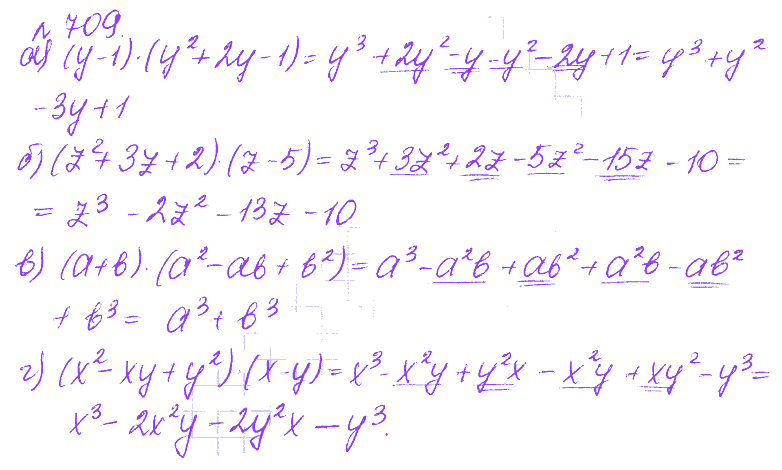 № 709.
а) (y-1)·(y²+2y-1)= y³+2y²-y-y²-2y+1= y³+y²
-3y+1
б) (z²+3z+2)·(z-5)= z³+3z²+2z-5z²-15z-10=
= z³-2z²-13z-10
в) (a+b)·(a²-ab+b²)= a³-a²b+ab²+a²b-ab²
+b³= a³+b³
г) (x²-xy+y²)·(x-y)= x³-x²y+y²x-x²y+xy²-y³=
x³-2x²y-2y²x-y³.